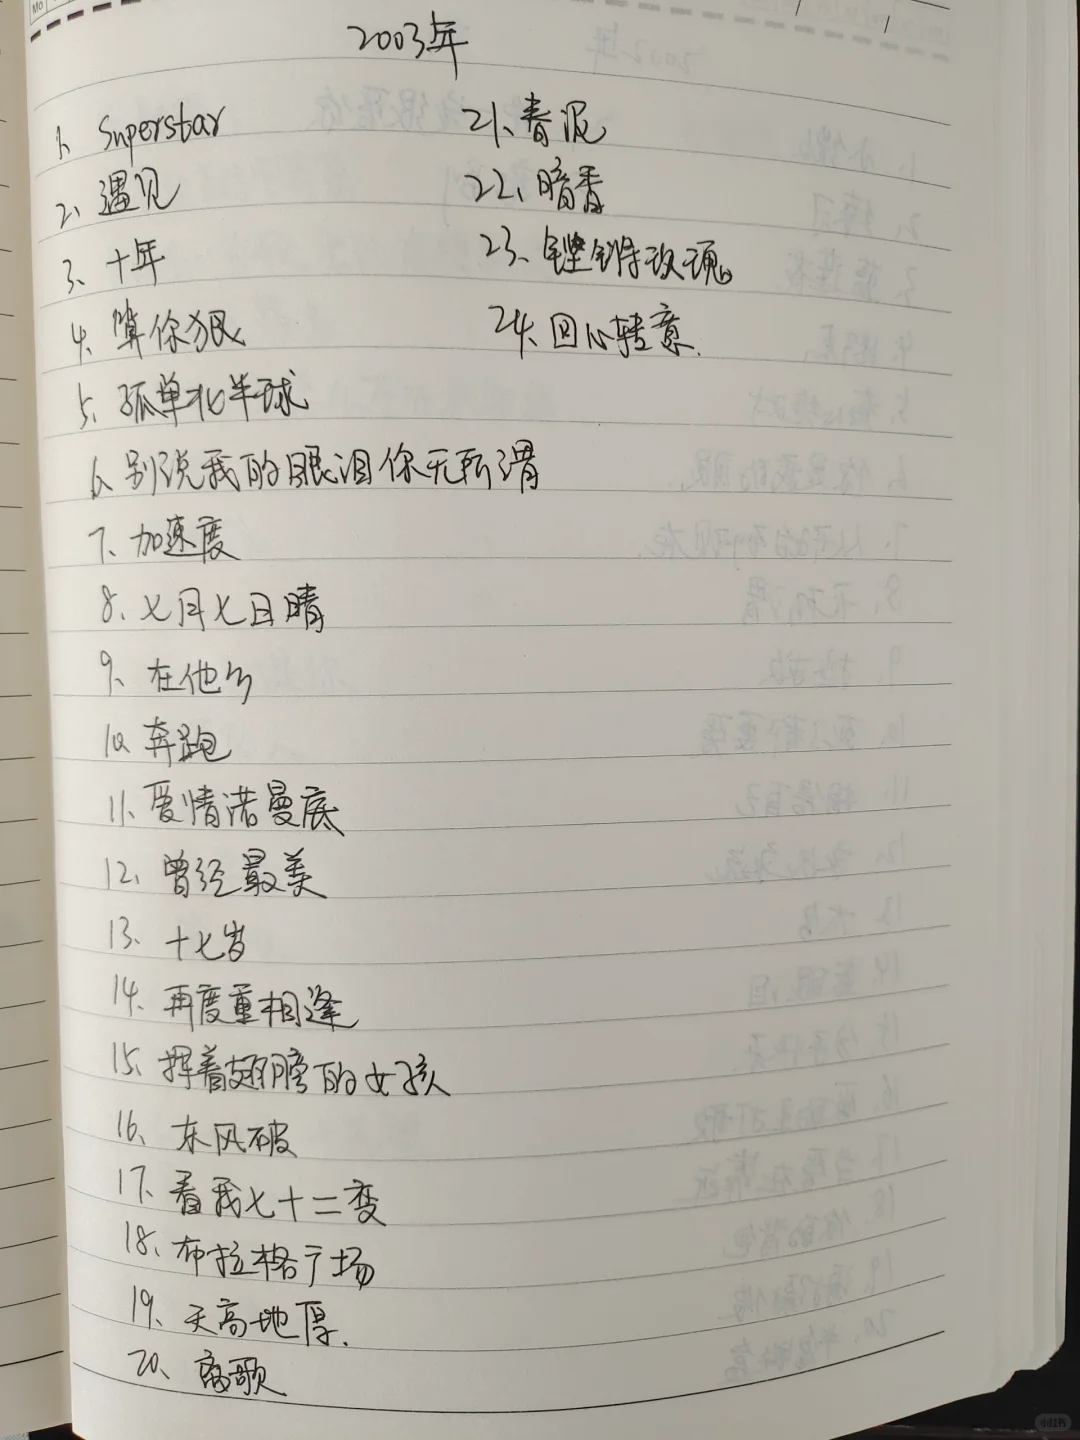 2003年
1、Superstar
2、遇见
3、十年
4、算你狠
5、孤单北半球
6、别说我的眼泪你无所谓
7、加速度
8、七月七日晴
9、在他乡
10、奔跑
11、爱情诺曼底
12、曾经最美
13、十七岁
14、再度重相逢
15、挥着翅膀的女孩
16、东风破
17、看我七十二变
18、布拉格广场
19、天高地厚.
20、离歌
21、春泥
22、暗香
23、铿锵玫瑰。
24、回心转意.
小红书